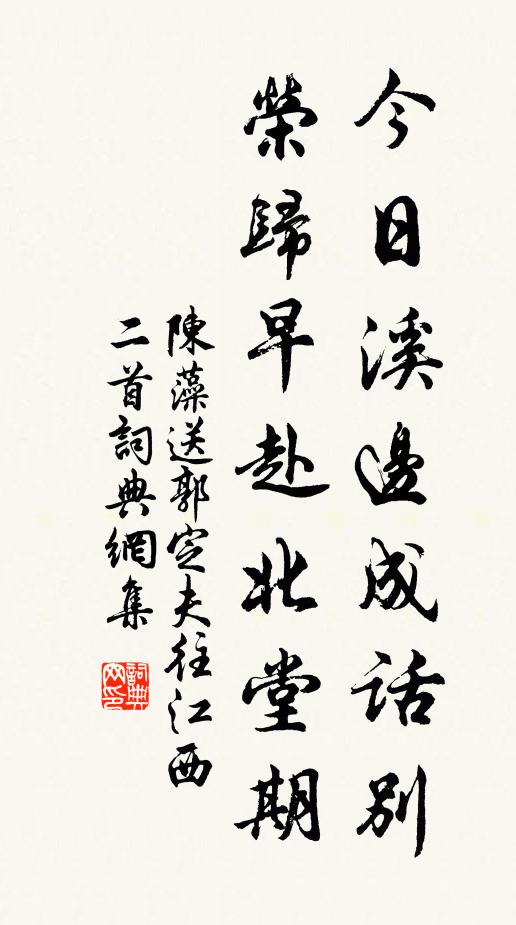 今日溪邊成話別
榮歸早赴北堂期
陳藻送郭定夫往江西
二首詞典網集
詞典网印